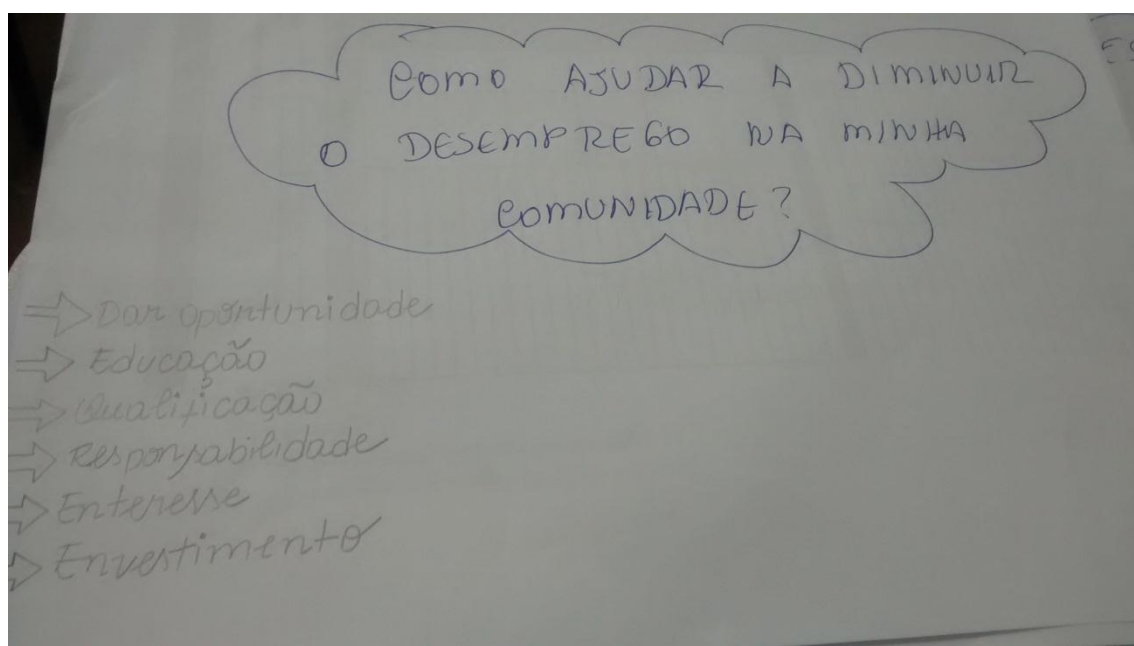 COMO AJUDAR A DIMINUIR
O DESEMPREGO NA MINHA
COMUNIDADE?
ES
⇒ Dar oportunidade
⇒ Educação
⇒ Qualificação
⇒ Responsabilidade
⇒ Enteresse
⇒ Envestimento